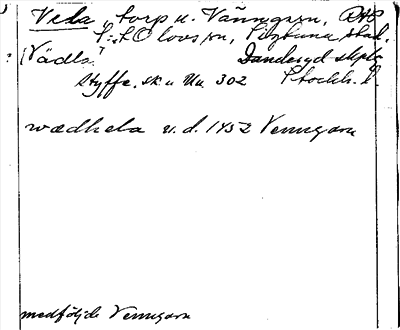 Veda torp u. Vänngarn,
S:t Olovs sn, Sigtuna stad.
(Vädla? Danderyd skplg
Styffe. sk. u. Un. 302 Stockh. l.
wædhela u. d. 1452 Venngarn
medföljde Venngarn